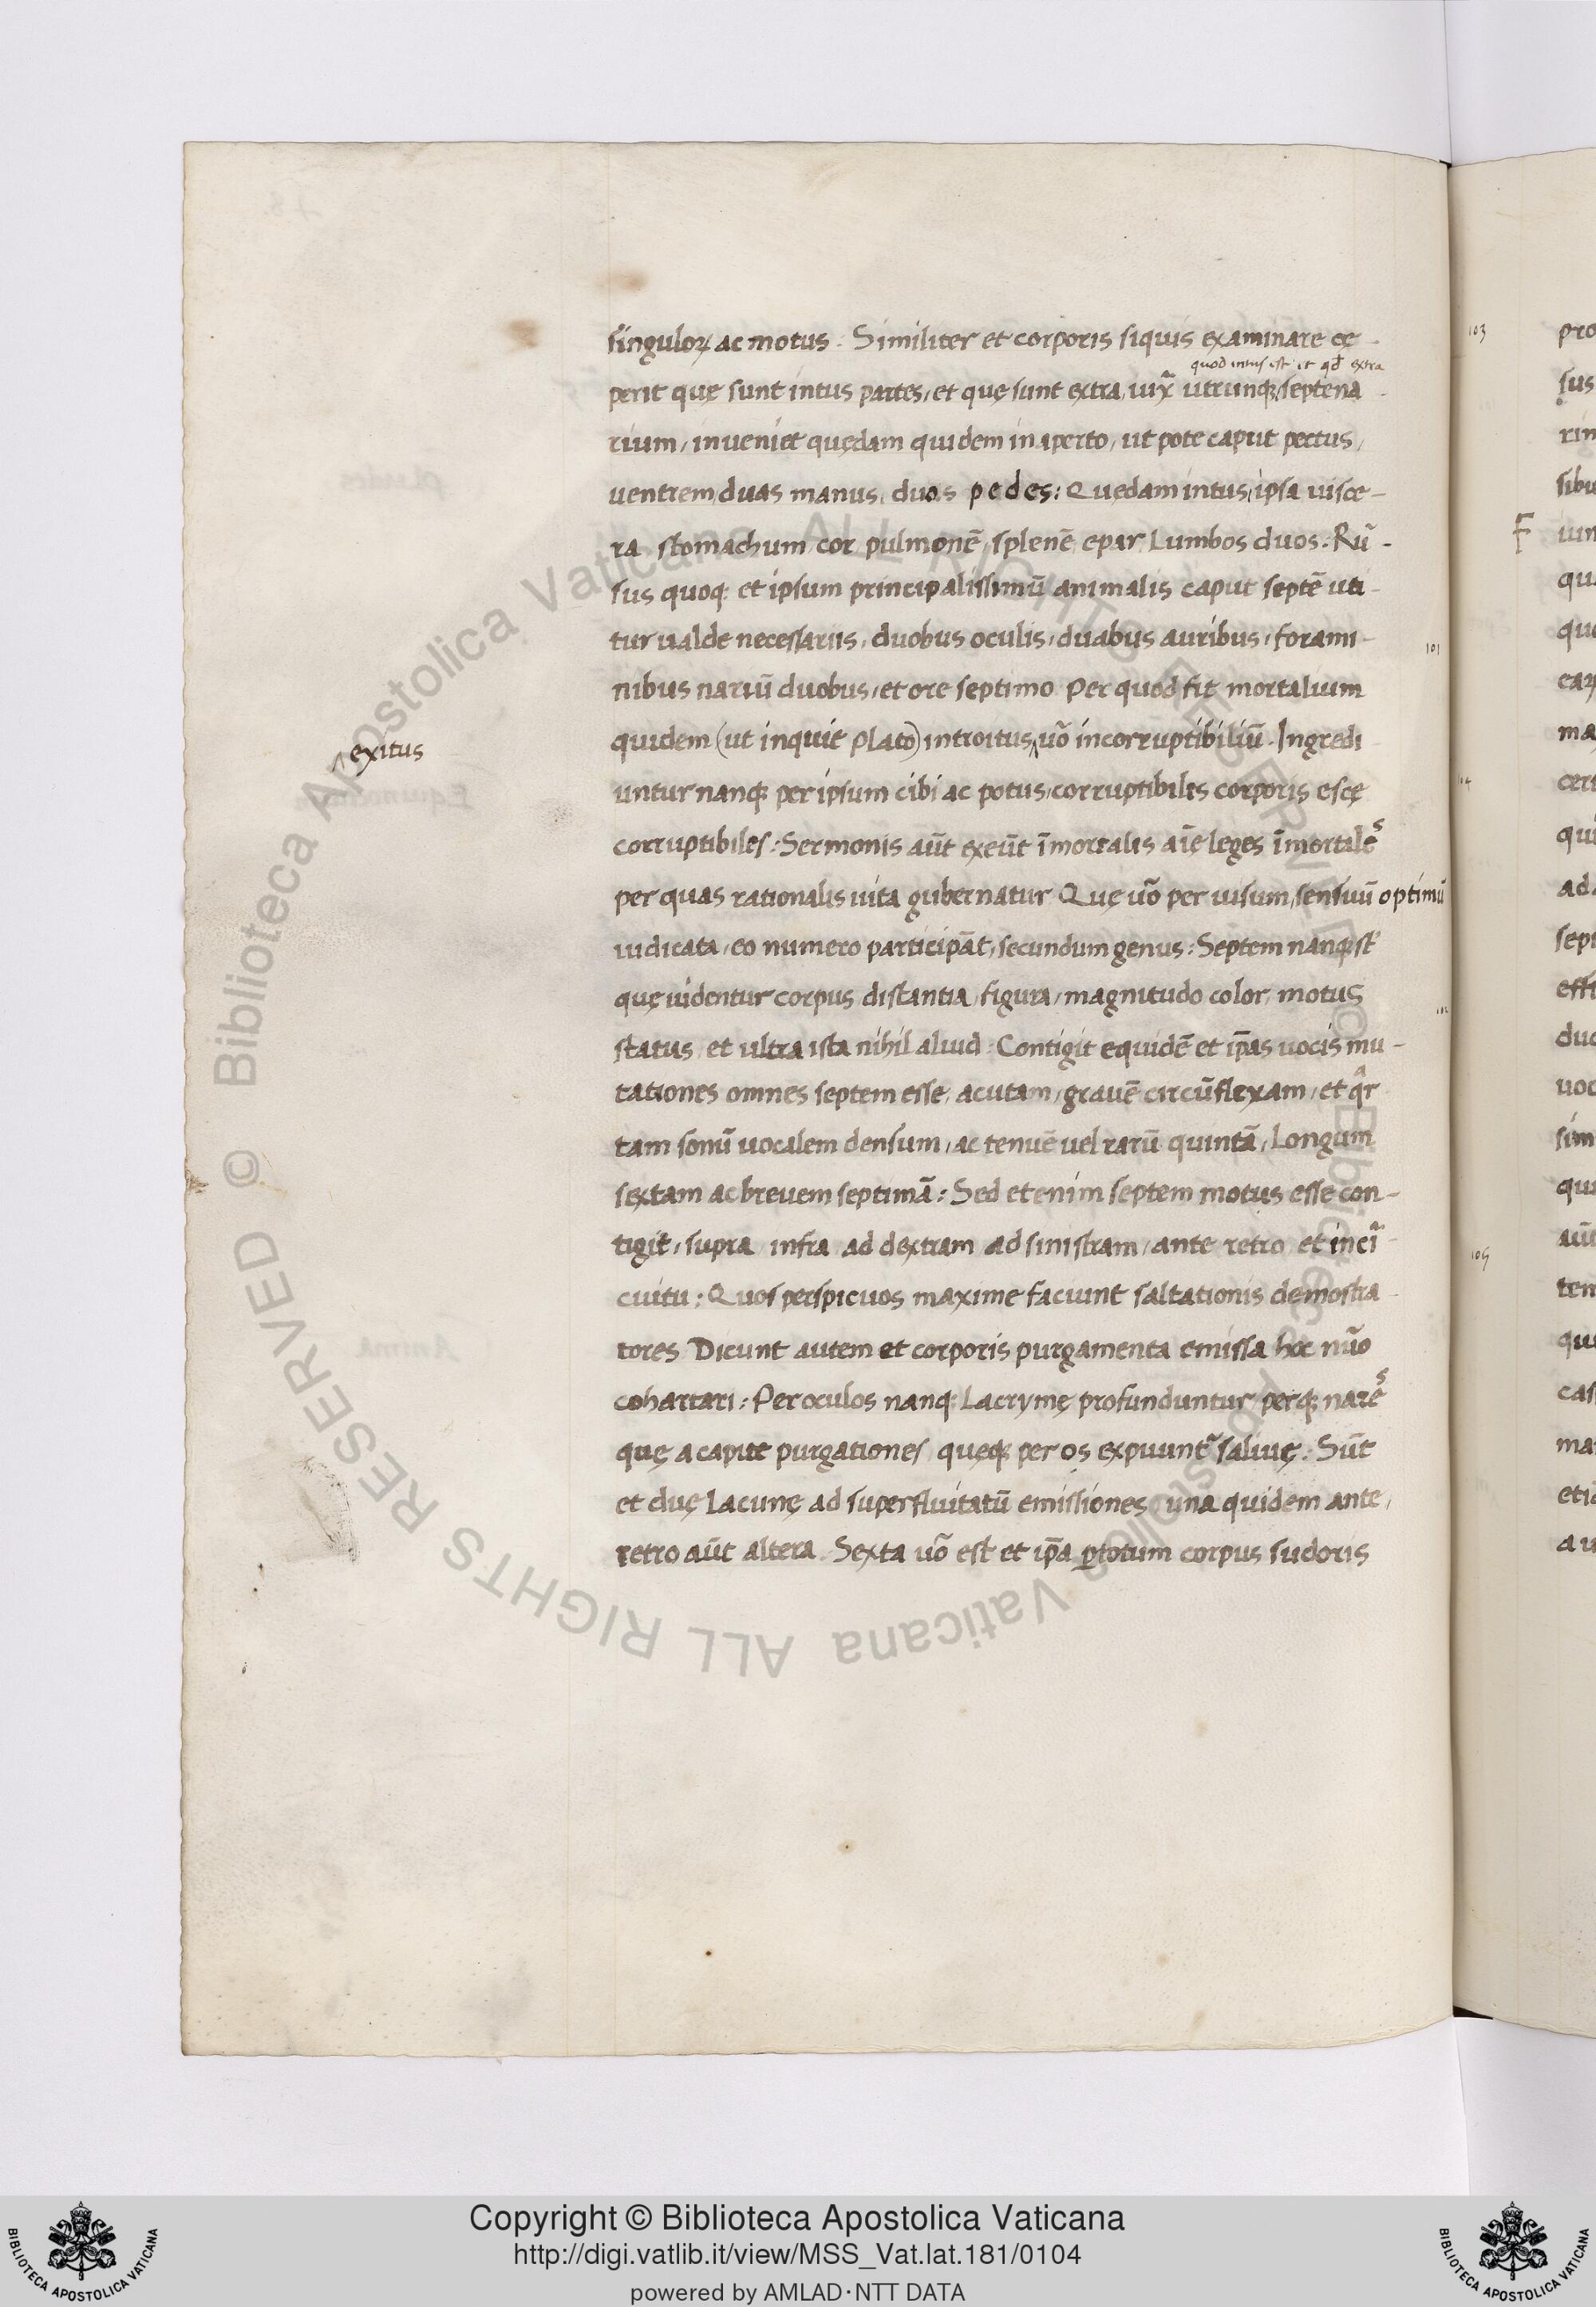 singuloꝝ ac motus. Similiter et corporis siquis examinare cę-
quod intus est et qđ extra
perit quę sunt intus partes, et quę sunt extra, iuxͣ utrunqꝫ septena-
rium, inueniet quędam quidem in aperto, ut pote caput pectus,
uentrem, duas manus, duos pedes: Quędam intus, ipsa uisce-
ra stomachum cor pulmonē, splenē, epar, Lumbos duos: Rū-
sus quoqꝫ et ipsum principalissimū animalis caput septē uti-
tur ualde necessariis, duobus oculis, duabus auribus, forami-
nibus nariū duobus, et ore septimo Per quod fit mortalium
exitus
quidem (ut inquit Plato) introitus, uō incorruptibiliū. Ingredi
untur nanqꝫ per ipsum cibi ac potus, corruptibilis corporis escę
corruptibiles: Sermonis aūt exeūt īmortalis aīę leges īmortales
per quas rationalis uita gubernatur Quę uō per uisum, sensuū optimū
iudicata, eo numero participāt, secundum genus: Septem nanqꝫ st̄
quę uidentur corpus distantia, figura, magnitudo color, motus
status, et ultra ista nihil aliud: Contigit equidē et ip̄as uocis mu-
tationes omnes septem esse, acutam, grauē circūflexam, et q̄r
tam sonū uocalem densum, ac tenuē uel rarū quintā, Longum
sextam ac breuem septimā: Sed et enim septem motus esse con-
tigit, supra infra ad dextram ad sinistram, ante retro et incī-
cuitu: Quos perspicuos maxime faciunt saltationis demostra-
tores Dicunt autem et corporis purgamenta emissa hoc nūo
cohartari: Per oculos nanqꝫ Lacrymę profunduntur, perqꝫ nares
quę a capite purgationes, quęqꝫ per os expuuntͬ saliuę: Sūt
et duę Lacunę ad superfluitatū emissiones, una quidem ante,
retro aūt altera. Sexta uō est et ip̄a ꝑ totum corpus sudoris
103
101
14
102
105
F
Copyright © Biblioteca Apostolica Vaticana
http://digi.vatlib.it/view/MSS_Vat.lat.181/0104
powered by AMLAD·NTT DATA